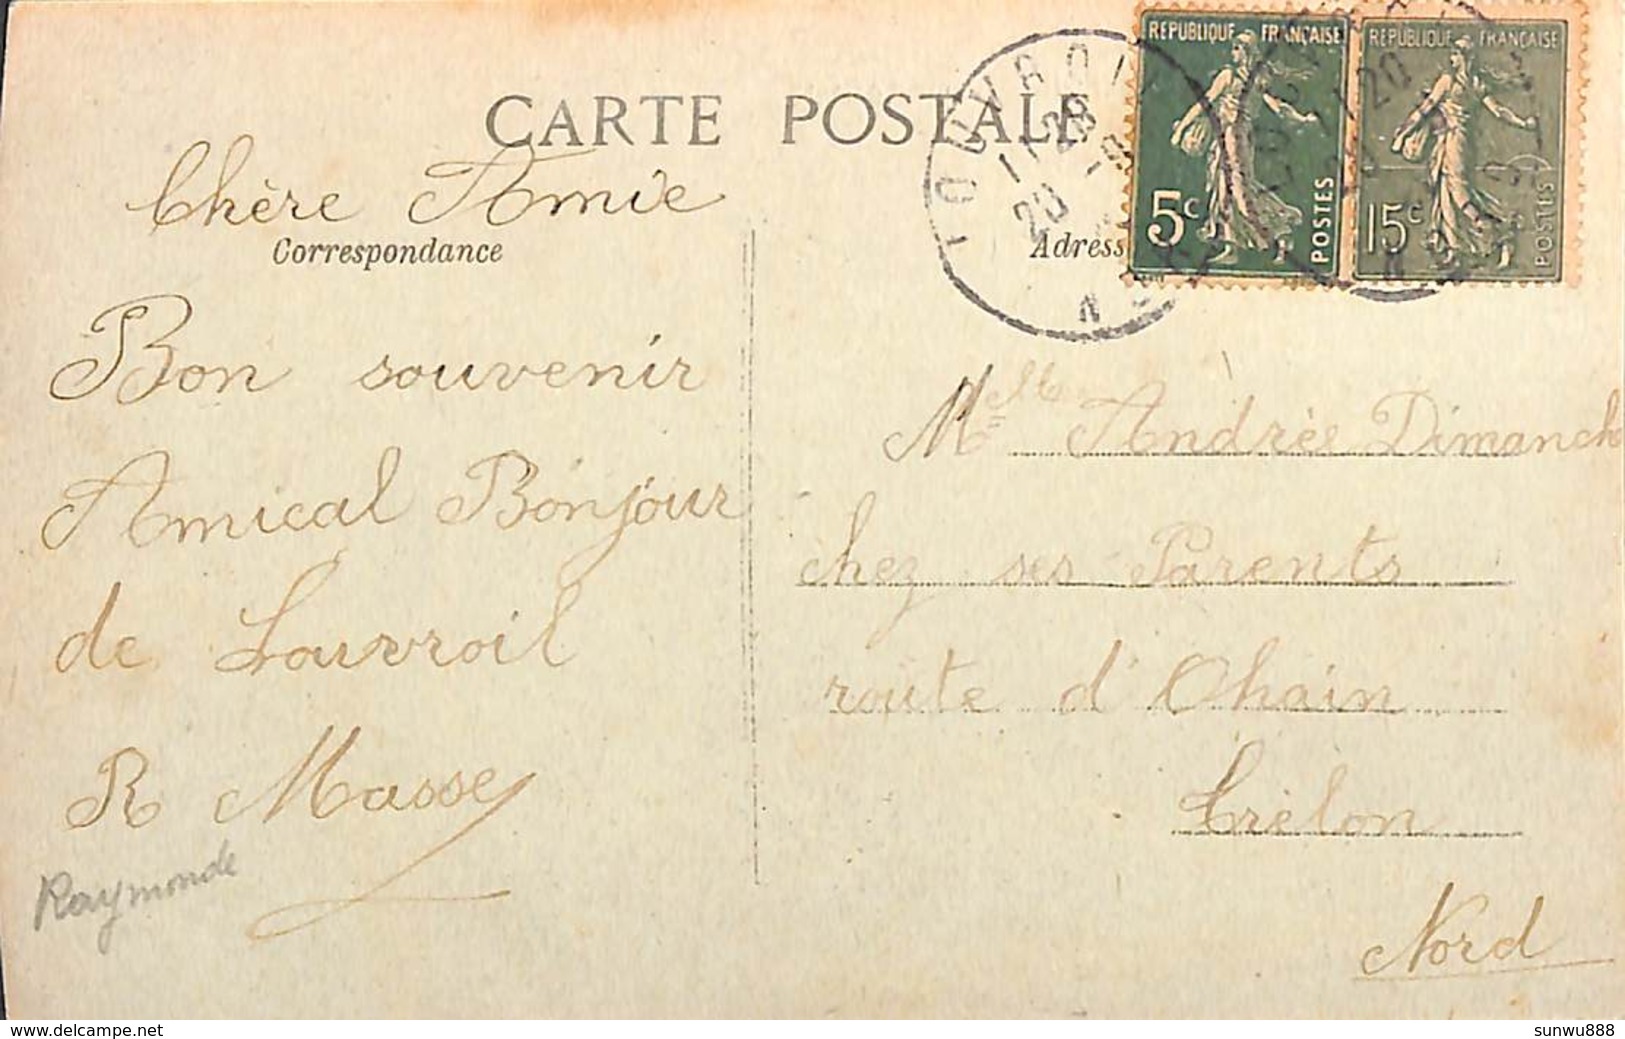 CARTE POSTALE
Chère Amie
Correspondance
Bon souvenir
Amical Bonjour
de Louvroil
R Masse
Raymonde
RÉPUBLIQUE FRANÇAISE
5c
POSTES
RÉPUBLIQUE FRANÇAISE
15c
POSTES
LOUVROIL
Adress
Melle Andrée Dimanch
chez ses Parents
route d'Ohain
Trélon
Nord
sunwu888
www.delcampe.net